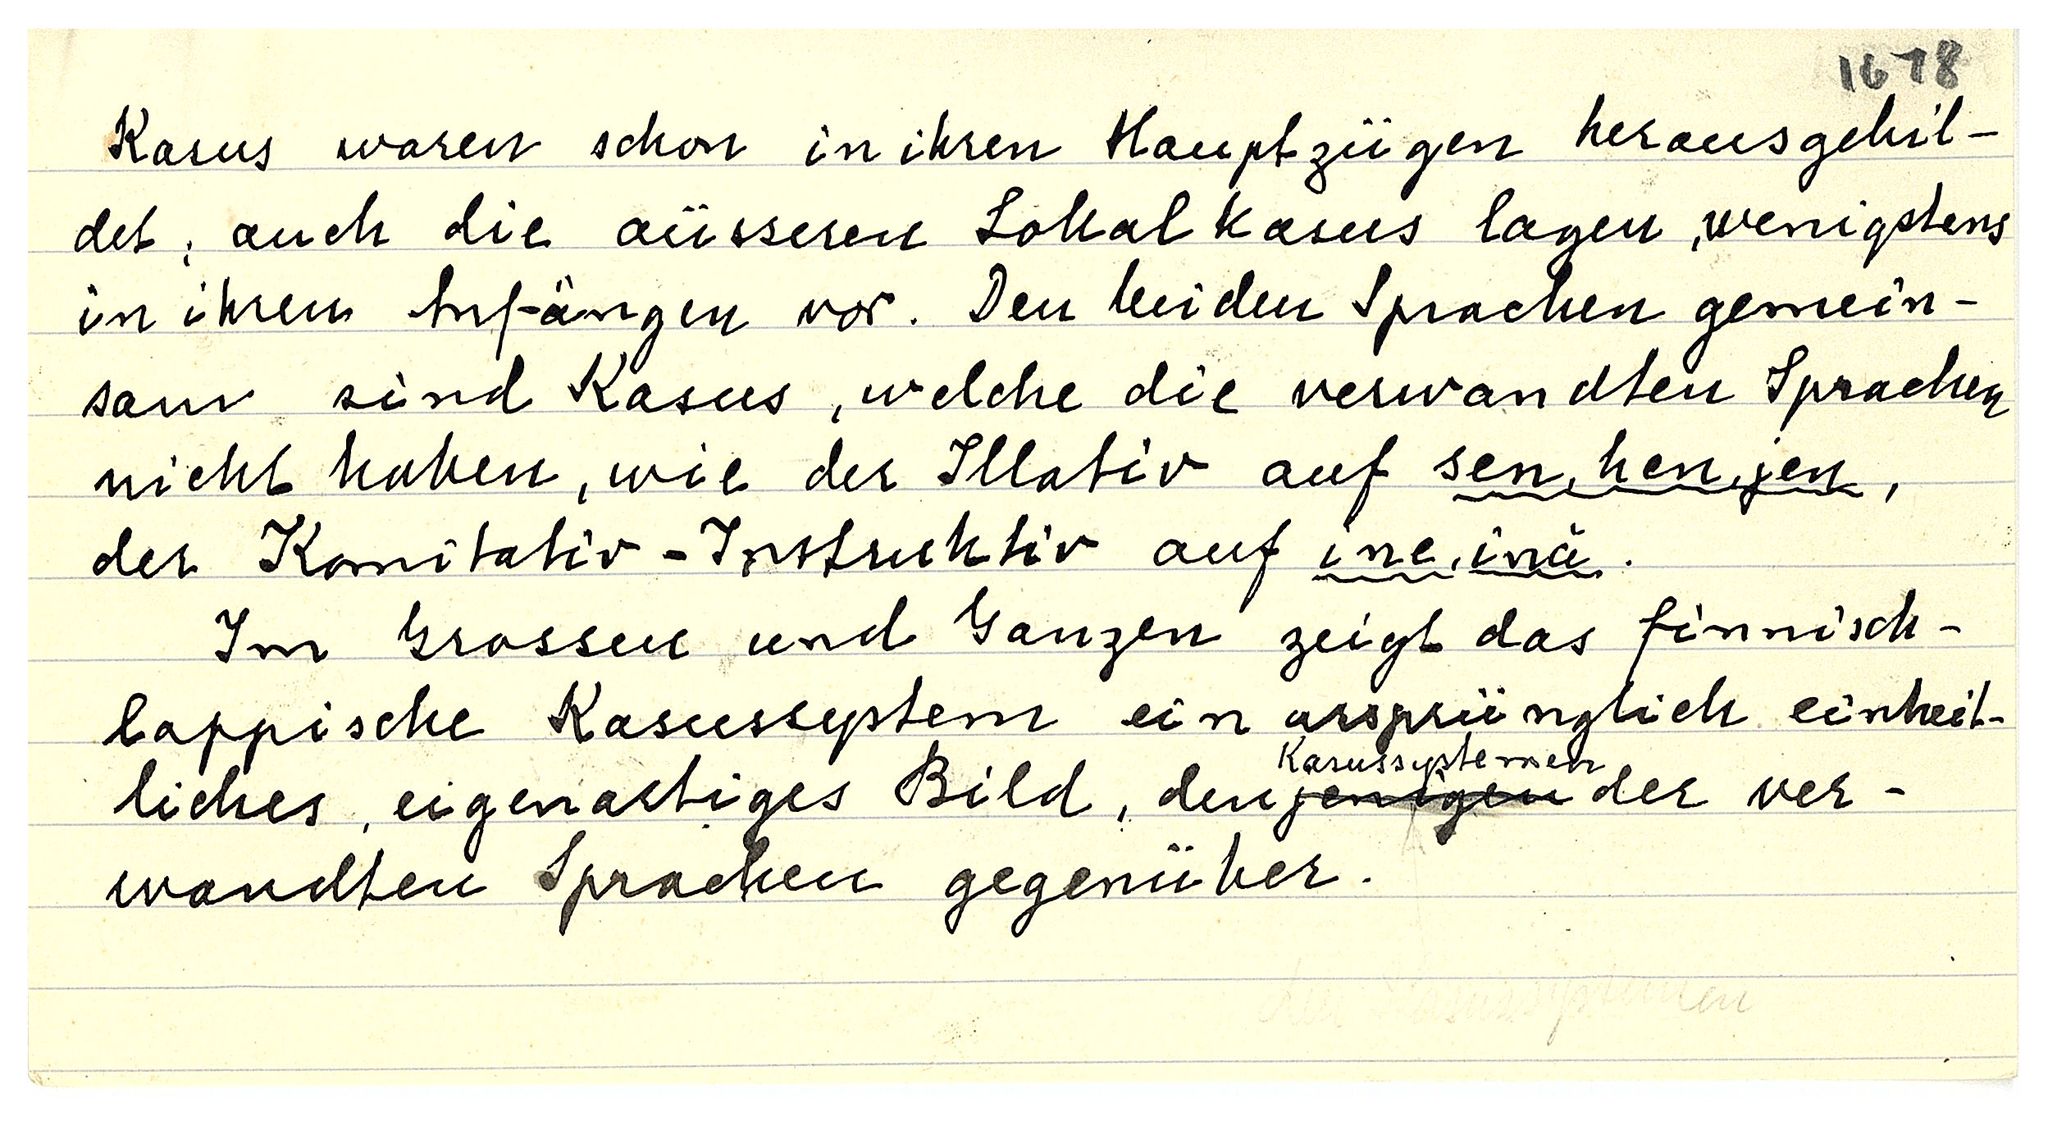 1678
Kasus waren schon in ihren Hauptzügen herausgebil-
det, auch die aüsseren Lokalkasus lagen, wenigstens
in ihren Anfängen vor. Den beiden Sprachen gemein-
sam sind Kasus, welche die verwandten Sprachen
nicht haben, wie der Illativ auf sen, hen, jen,
der Komitativ-Instruktiv auf ine, inä.
Im Grossen und Ganzen zeigt das finnisch-
lappische Kasussystem ein ursprünglich einheit-
Kasussystemen
liches, eigenartiges Bild, denjenigen der ver-
wandten Sprachen gegenüber.
den Kasussystemen